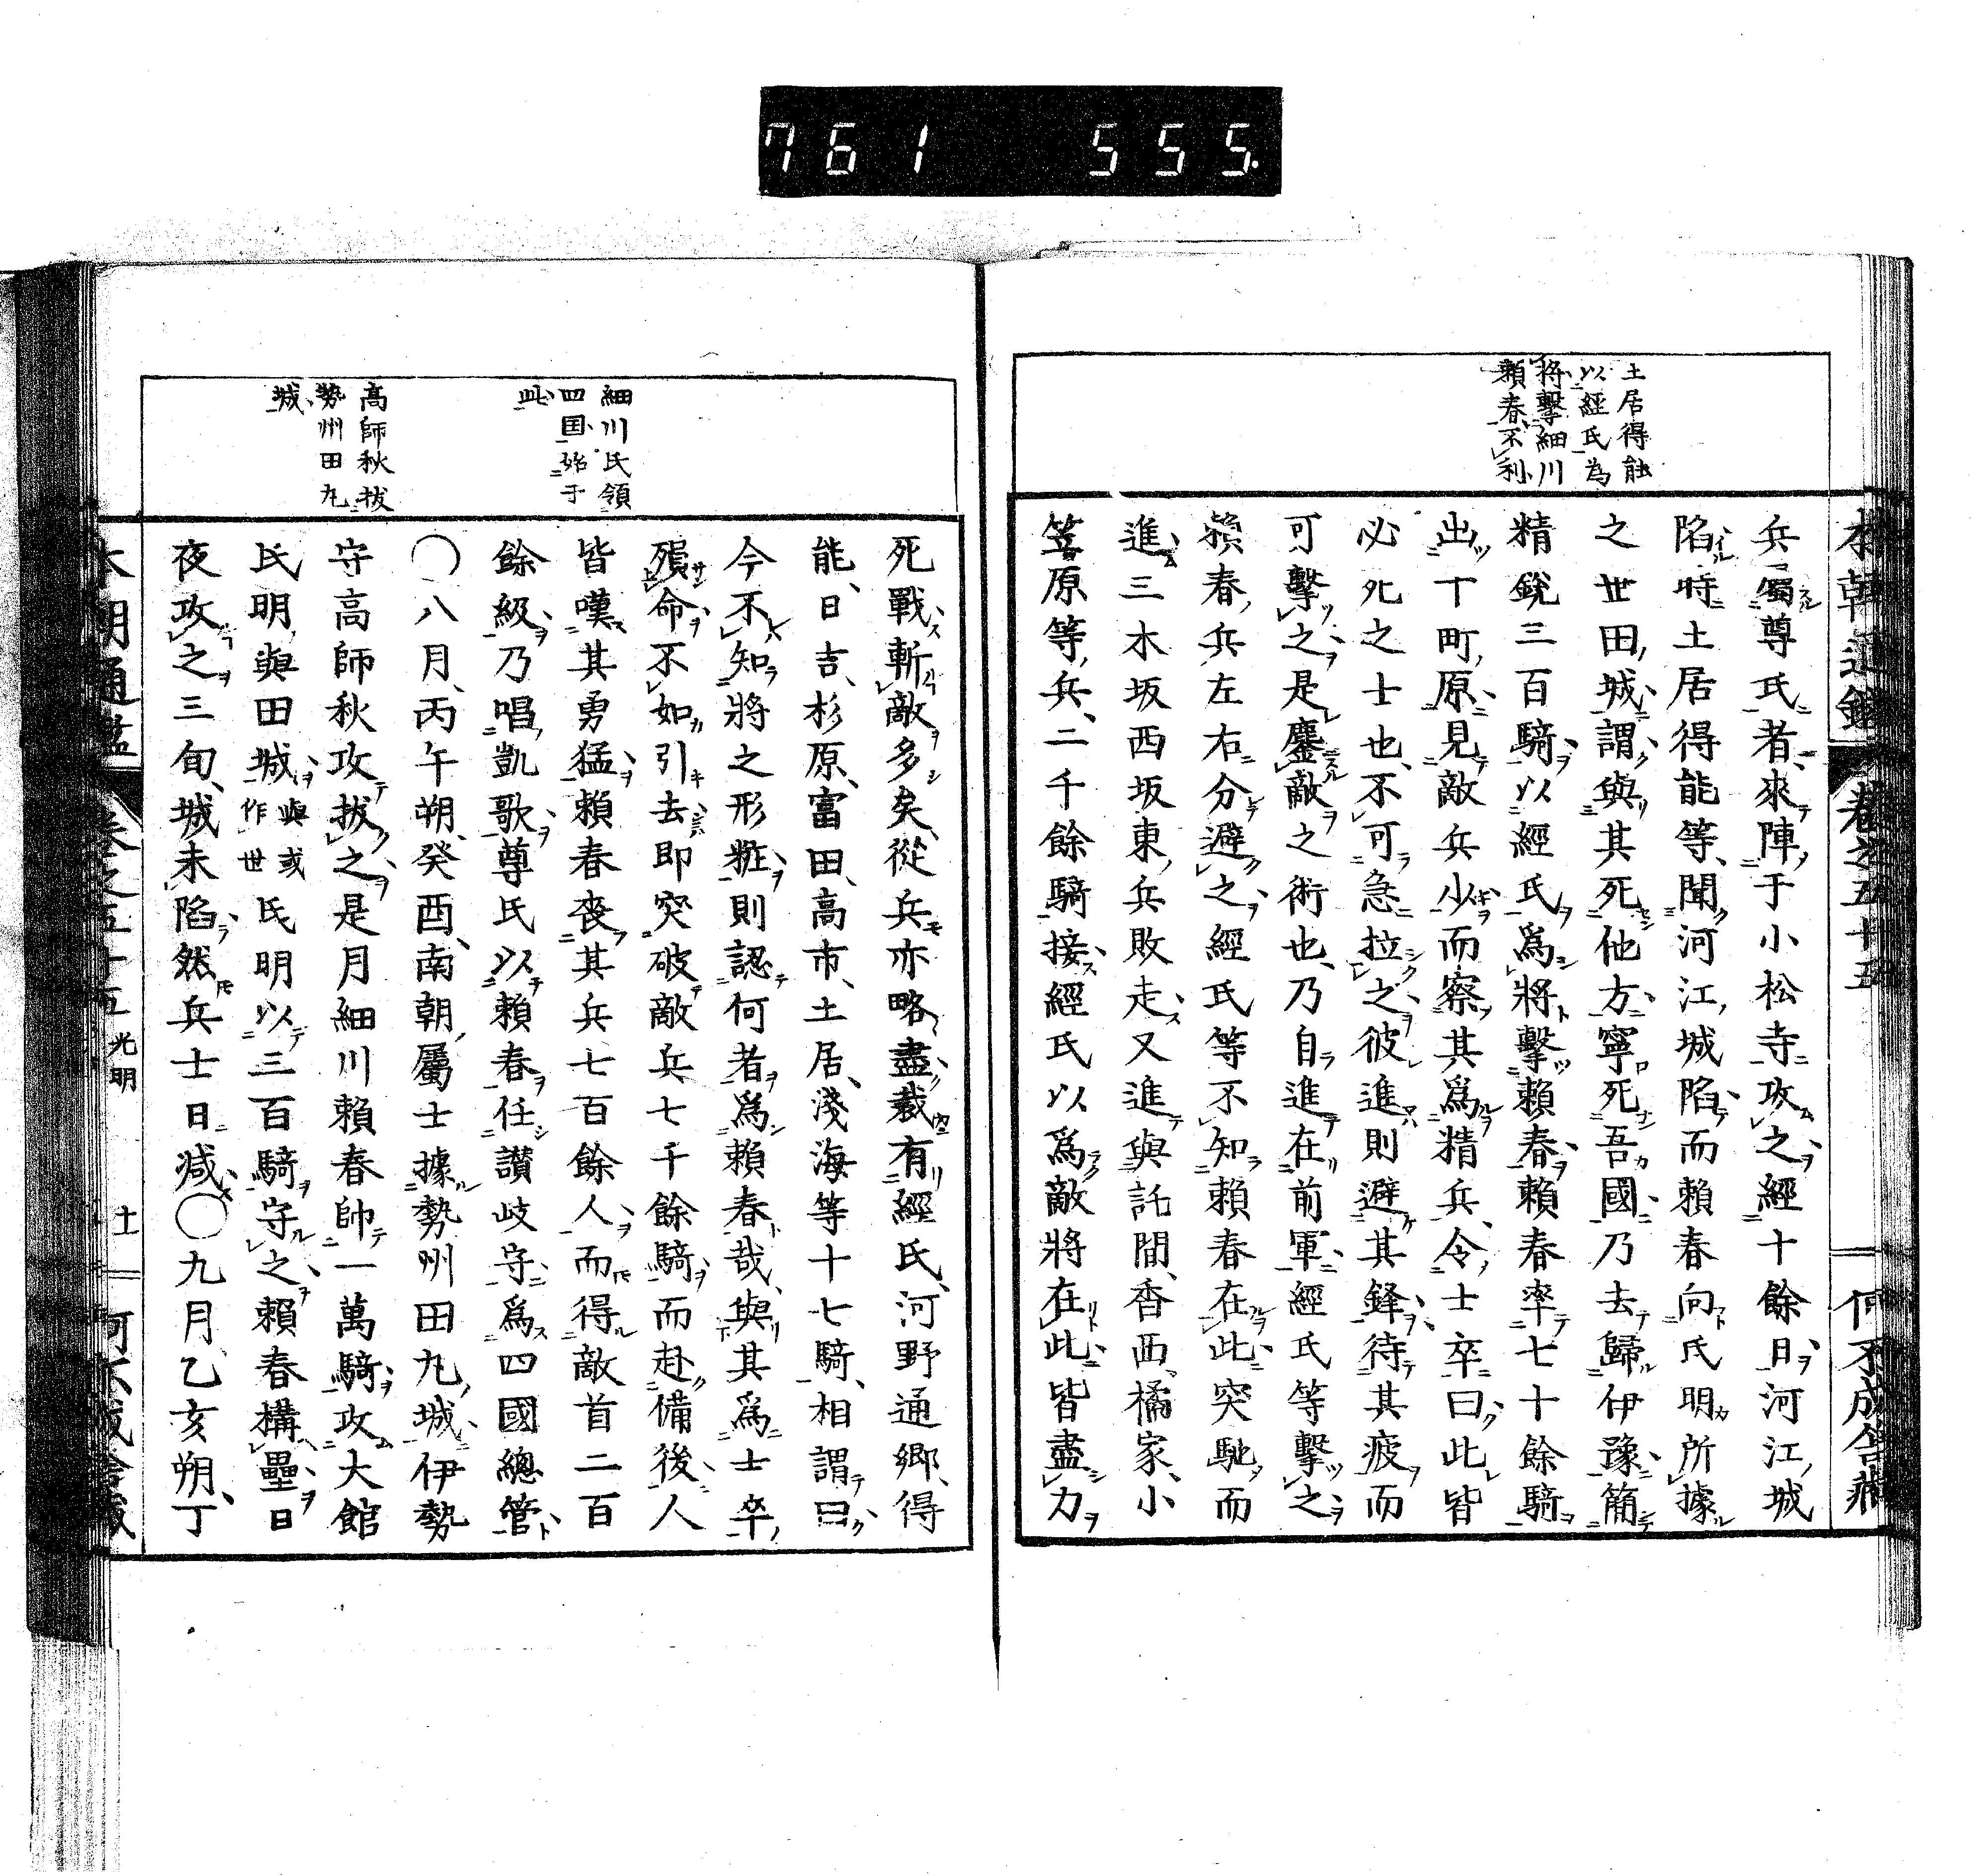 761 555.
土居得能
以經氏為
將擊細川
賴春不利
兵屬尊氏者來陣于小松寺攻之經十餘日河江城
陷時土居得能等聞河江城陷而賴春向氏明所據
之世田城謂與其死他方寧死吾國乃去歸伊豫簡
精銳三百騎以經氏爲將擊賴春賴春率七十餘騎
出十町原見敵兵少而察其爲精兵令士卒曰此皆
必死之士也不可急拉之彼進則避其鋒待其疲而
可擊之是鏖敵之術也乃自進在前軍經氏等擊之
賴春兵左右分避之經氏等不知賴春在此突馳而
進三木坂西坂東兵敗走又進與託間香西橘家小
笠原等兵二千餘騎接經氏以爲敵將在此皆盡力
細川氏領
四国始于
此
高師秋拔
勢州田丸
城
死戰斬敵多矣從兵亦略盡裁有經氏河野通鄉得
能日吉杉原富田高市土居淺海等十七騎相謂曰
今不知將之形粧則認何者爲賴春哉與其爲士卒
殞命不如引去即突破敵兵七千餘騎而赴備後人
皆嘆其勇猛賴春喪其兵七百餘人而得敵首二百
餘級乃唱凱歌尊氏以賴春任讃岐守爲四國總管
○八月丙午朔癸酉南朝屬士據勢州田丸城伊勢
守高師秋攻拔之是月細川賴春帥一萬騎攻大館
氏明與田城與或作世氏明以三百騎守之賴春構壘日
夜攻之三旬城未陷然兵士日减○九月乙亥朔丁
本朝通鑑 卷之五十五 光明 十一